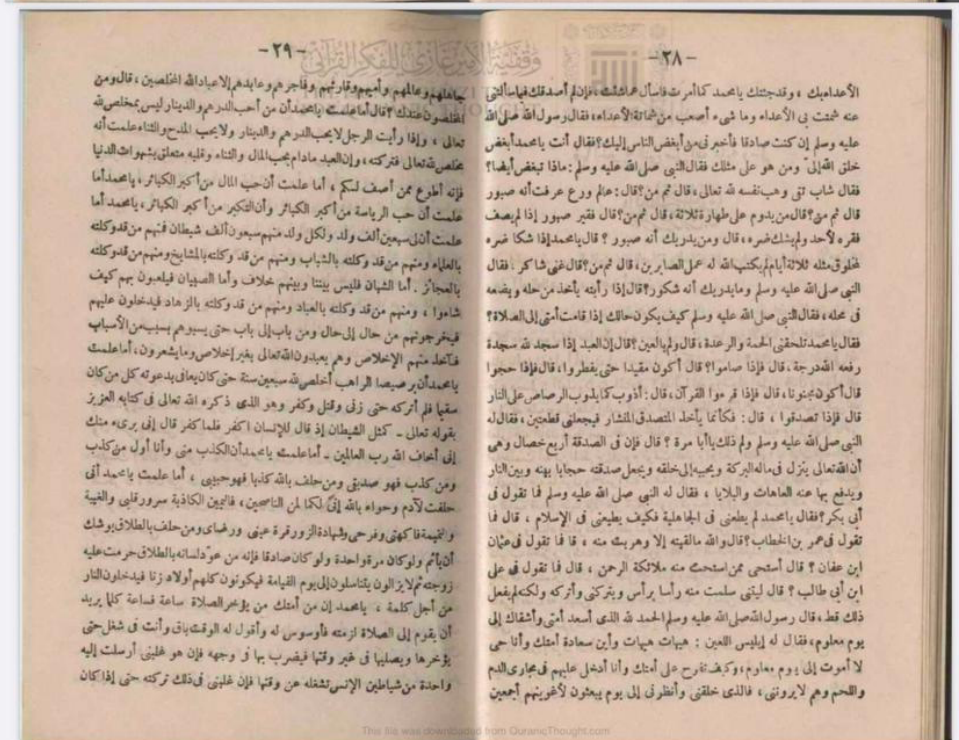 - ٢٨ -
الأعداء بك ، وقد جئتك يا محمد كما أمرت فاسأل عما شئت ، فإن لم أصدقك فيما سألتنى
عنه شمتت بى الأعداء وما شىء أصعب من شماتة الأعداء، فقال رسول الله صلى الله
عليه وسلم إن كنت صادقا فأخبرنى من أبغض الناس إليك؟ فقال أنت يا محمد أبغض
خلق الله إلىّ ومن هو على مثلك فقال النبى صلى الله عليه وسلم: ماذا تبغض أيضا؟
فقال شاب تقى وهب نفسه لله تعالى، قال ثم من؟ قال: عالم ورع عرفت أنه صبور
قال ثم من؟ قال من يدوم على طهارة ثلاثة، قال ثم من؟ قال: فقير صبور إذا لم يصف
فقره لأحد ولم يشك ضره، قال ومن يدريك أنه صبور ؟ قال يا محمد إذا شكا ضره
لمخلوق مثله ثلاثة أيام لم يكتب الله له عمل الصابرين، قال ثم من؟ قال غنى شاكر . فقال
النبى صلى الله عليه وسلم وما يدريك أنه شكور؟ قال إذا رأيته يأخذ من حله ويضعه
فى محله، فقال النبى صلى الله عليه وسلم كيف يكون حالك إذا قامت أمتى إلى الصلاة؟
فقال يا محمد تلحقنى الحمة والرعدة، قال ولم يا لعين؟ قال إن العبد إذا سجد لله سجدة
رفعه الله درجة، قال فإذا صاموا؟ قال أكون مقيدا حتى يفطروا، قال فإذا حجوا
قال أكون مجنونا، قال فإذا قرءوا القرآن، قال: أذوب كما يذوب الرصاص على النار
قال فإذا تصدقوا ، قال : فكأنما يأخذ المتصدق المنشار فيجعلنى قطعتين، فقال له
النبى صلى الله عليه وسلم ولم ذلك يا أبا مرة ؟ قال فإن فى الصدقة أربع خصال وهى
أن الله تعالى ينزل فى ماله البركة ويحببه إلى خلقه ويجعل صدقته حجابا بينه وبين النار
ويدفع بها عنه العاهات والبلايا ، فقال له النبى صلى الله عليه وسلم فما تقول فى
أبى بكر؟ فقال يا محمد لم يطعنى فى الجاهلية فكيف يطيعنى فى الإسلام ، قال فما
تقول فى عمر بن الخطاب؟ قال والله ما لقيته إلا وهربت منه ، قا فما تقول فى عثمان
ابن عفان ؟ قال أستحى ممن استحت منه ملائكة الرحمن ، قال فما تقول فى على
ابن أبى طالب ؟ قال ليتنى سلمت منه رأسا برأس ويتركنى وأتركه ولكنه لم يفعل
ذلك قط، قال رسول الله صلى الله عليه وسلم الحمد لله الذى أسعد أمتى وأشقاك إلى
يوم معلوم، فقال له إبليس اللعين : هيهات هيهات وأين سعادة أمتك وأنا حى
لا أموت إلى يوم معلوم، وكيف تفرح على أمتك وأنا أدخل عليهم فى مجارى الدم
واللحم وهم لا يرونى، فالذى خلقنى وأنظرنى إلى يوم يبعثون لأغوينهم أجمعين
- ٢٩ -
جاهلهم وعالمهم وأميهم وقارئهم وفاجرهم وعابدهم إلا عباد الله المخلصين ، قال ومن
المخلصون عندك ؟ قال أما علمت يا محمد أن من أحب الدرهم والدينار ليس بمخلص لله
تعالى ، وإذا رأيت الرجل لا يحب الدرهم والدينار ولا يحب المدح والثناء علمت أنه
مخلص لله تعالى فتركته، وإن العبد مادام يحب المال والثناء وقلبه متعلق بشهوات الدنيا
فإنه أطوع ممن أصف لكم ، أما علمت أن حب المال من أكبر الكبائر، يا محمد أما
علمت أن حب الرياسة من أكبر الكبائر وأن التكبر من أكبر الكبائر، يا محمد أما
علمت أن لى سبعين ألف ولد ولكل ولد منهم سبعون ألف شيطان فمنهم من قد وكلته
بالعلماء ومنهم من قد وكلته بالشباب ومنهم من قد وكلته بالمشايخ ومنهم من قد وكلته
بالعجائز . أما الشبان فليس بيننا وبينهم خلاف وأما الصبيان فيلعبون بهم كيف
شاءوا ، ومنهم من قد وكلته بالعباد ومنهم من قد وكلته بالزهاد فيدخلون عليهم
فيخرجونهم من حال إلى حال ومن باب إلى باب حتى يسبوهم بسبب من الأسباب
فآخذ منهم الإخلاص وهم يعبدون الله تعالى بغير إخلاص وما يشعرون، أما علمت
يا محمد أن برصيصا الراهب أخلص لله سبعين سنة حتى كان يعافى بدعوته كل من كان
سقيما فلم أتركه حتى زنى وقتل وكفر وهو الذى ذكره الله تعالى فى كتابه العزيز
بقوله تعالى ـ كمثل الشيطان إذ قال للإنسان اكفر فلما كفر قال إنى برىء منك
إنى أخاف الله رب العالمين ـ أما علمت يا محمد أن الكذب منى وأنا أول من كذب
ومن كذب فهو صديقى ومن حلف بالله كذبا فهو حبيبى ، أما علمت يا محمد أنى
حلفت لآدم وحواء بالله إنى لكما لمن الناصحين، فاليمين الكاذبة سرور قلبى والغيبة
والنميمة فاكهتى وفرحى وشهادة الزور قرة عينى ورضاى ومن حلف بالطلاق يوشك
أن يأثم ولو كان مرة واحدة ولو كان صادقا فإنه من عوّد لسانه بالطلاق حرمت عليه
زوجته ثم لا يزالون يتناسلون إلى يوم القيامة فيكونون كلهم أولاد زنا فيدخلون النار
من أجل كلمة ، يا محمد إن من أمتك من يؤخر الصلاة ساعة فساعة كلما يريد
أن يقوم إلى الصلاة لزمته فأوسوس له وأقول له الوقت باق وأنت فى شغل حتى
يؤخرها ويصليها فى غير وقتها فيضرب بها فى وجهه فإن هو غلبنى أرسلت إليه
واحدة من شياطين الإنس تشغله عن وقتها فإن غلبنى فى ذلك تركته حتى إذا كان
وقفية الأمير غازي للفكر القرآني
This file was downloaded from QuranicThought.com